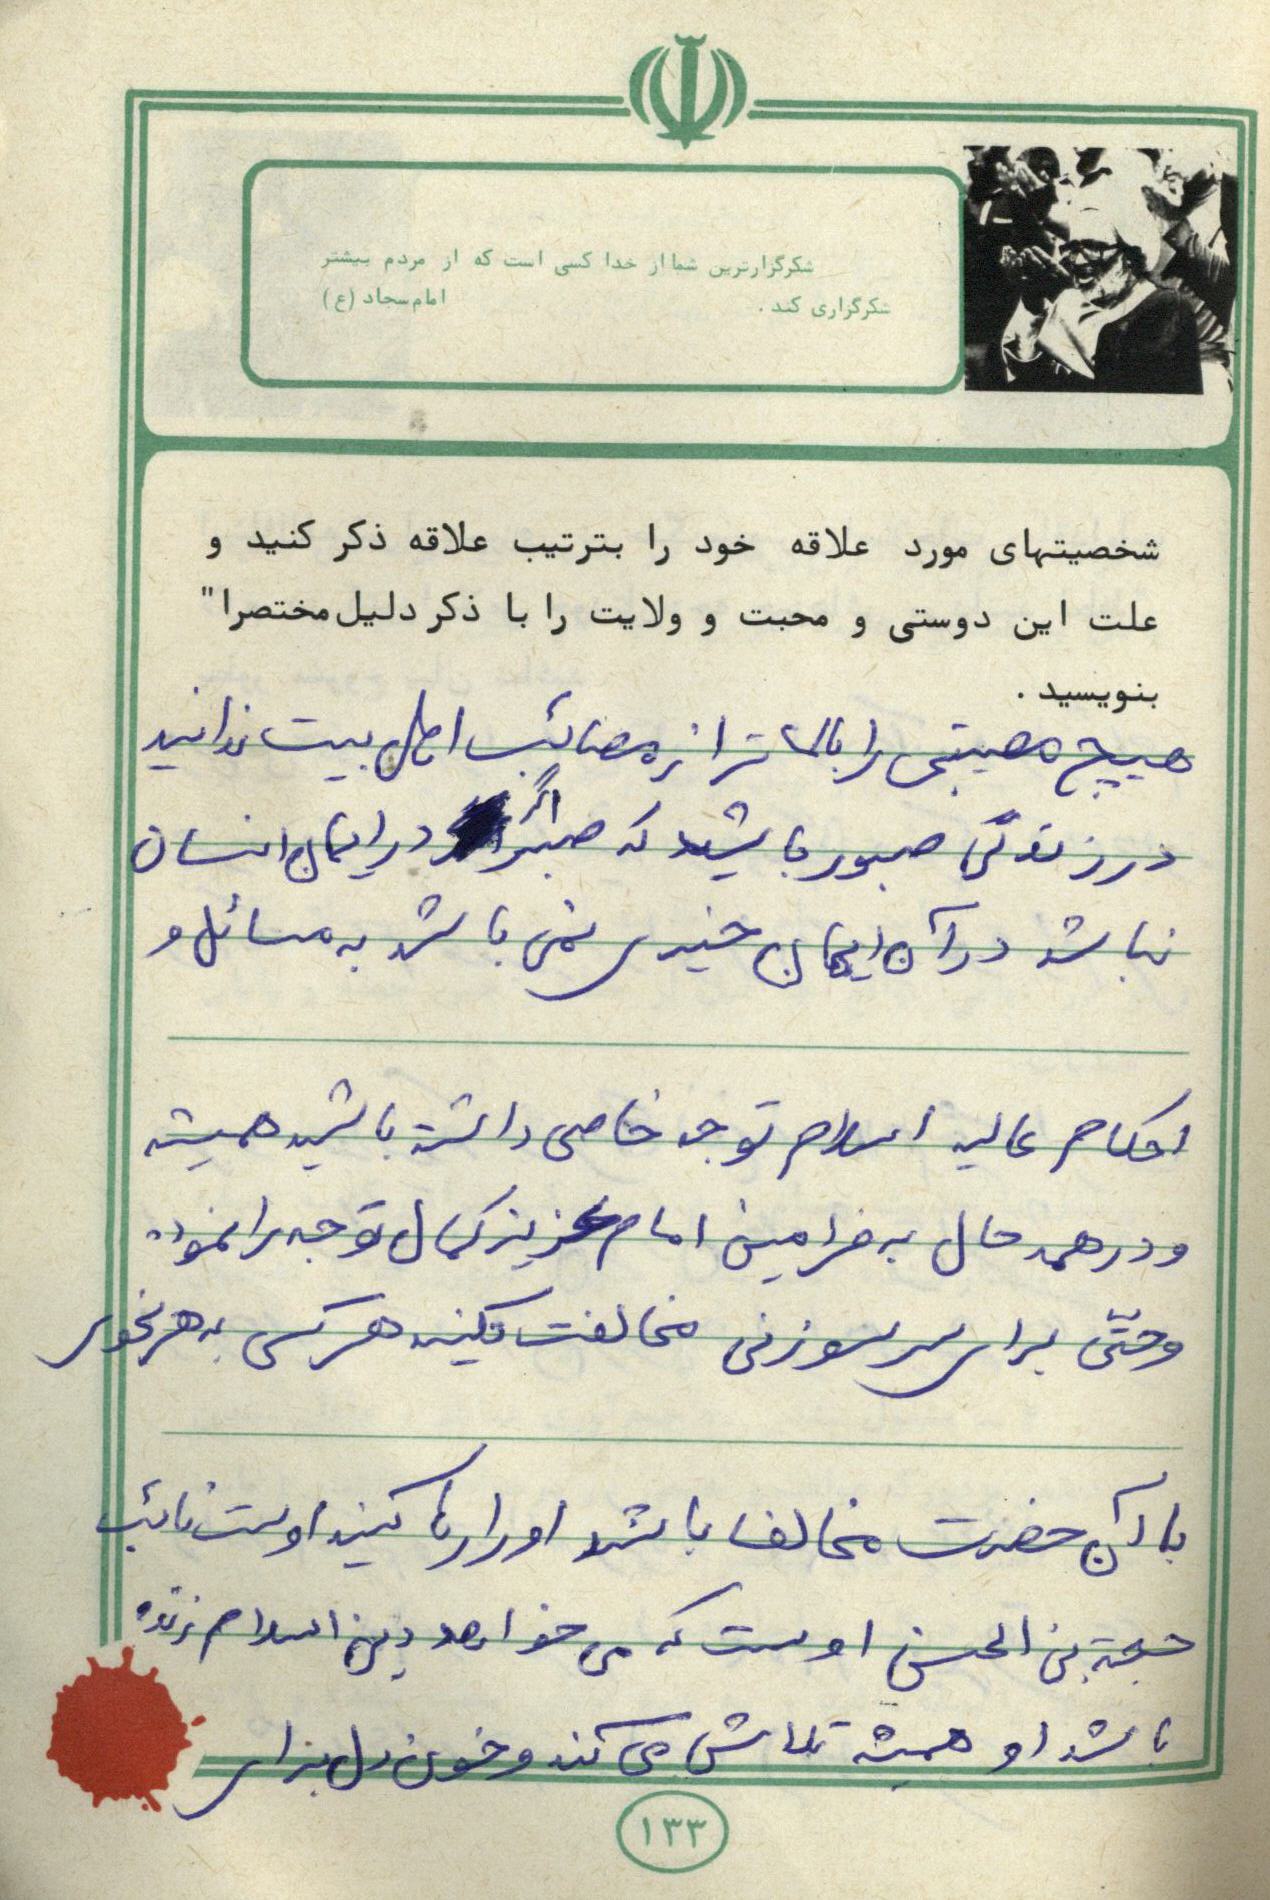 شکرگزارترین شما از خدا کسی است که از مردم بیشتر
شکرگزاری کند . امام سجاد (ع)
شخصیتهای مورد علاقه خود را بترتیب علاقه ذکر کنید و
علت این دوستی و محبت و ولایت را با ذکر دلیل مختصرا"
بنویسید .
هیچ مصیبتی را بالاتر از مصائب اهل بیت ندانید
در زندگی صبور باشید که صبر اگر در ایمان انسان
نباشد در آن ایمان خیری نمی باشد به مسائل و
احکام عالیه اسلام توجه خاصی داشته باشید همیشه
و در همه حال به فرامین امام عزیز کمال توجه را نموده
و حتّی برای سر سوزنی مخالفت نکنید هر کسی به هر نحوی
با آن حضرت مخالف باشد او را رها کنید اوست نائب
حجة بن الحسن اوست که می خواهد دین اسلام زنده
باشد او همیشه تلاش می کند و خون دل برای
۱۳۳